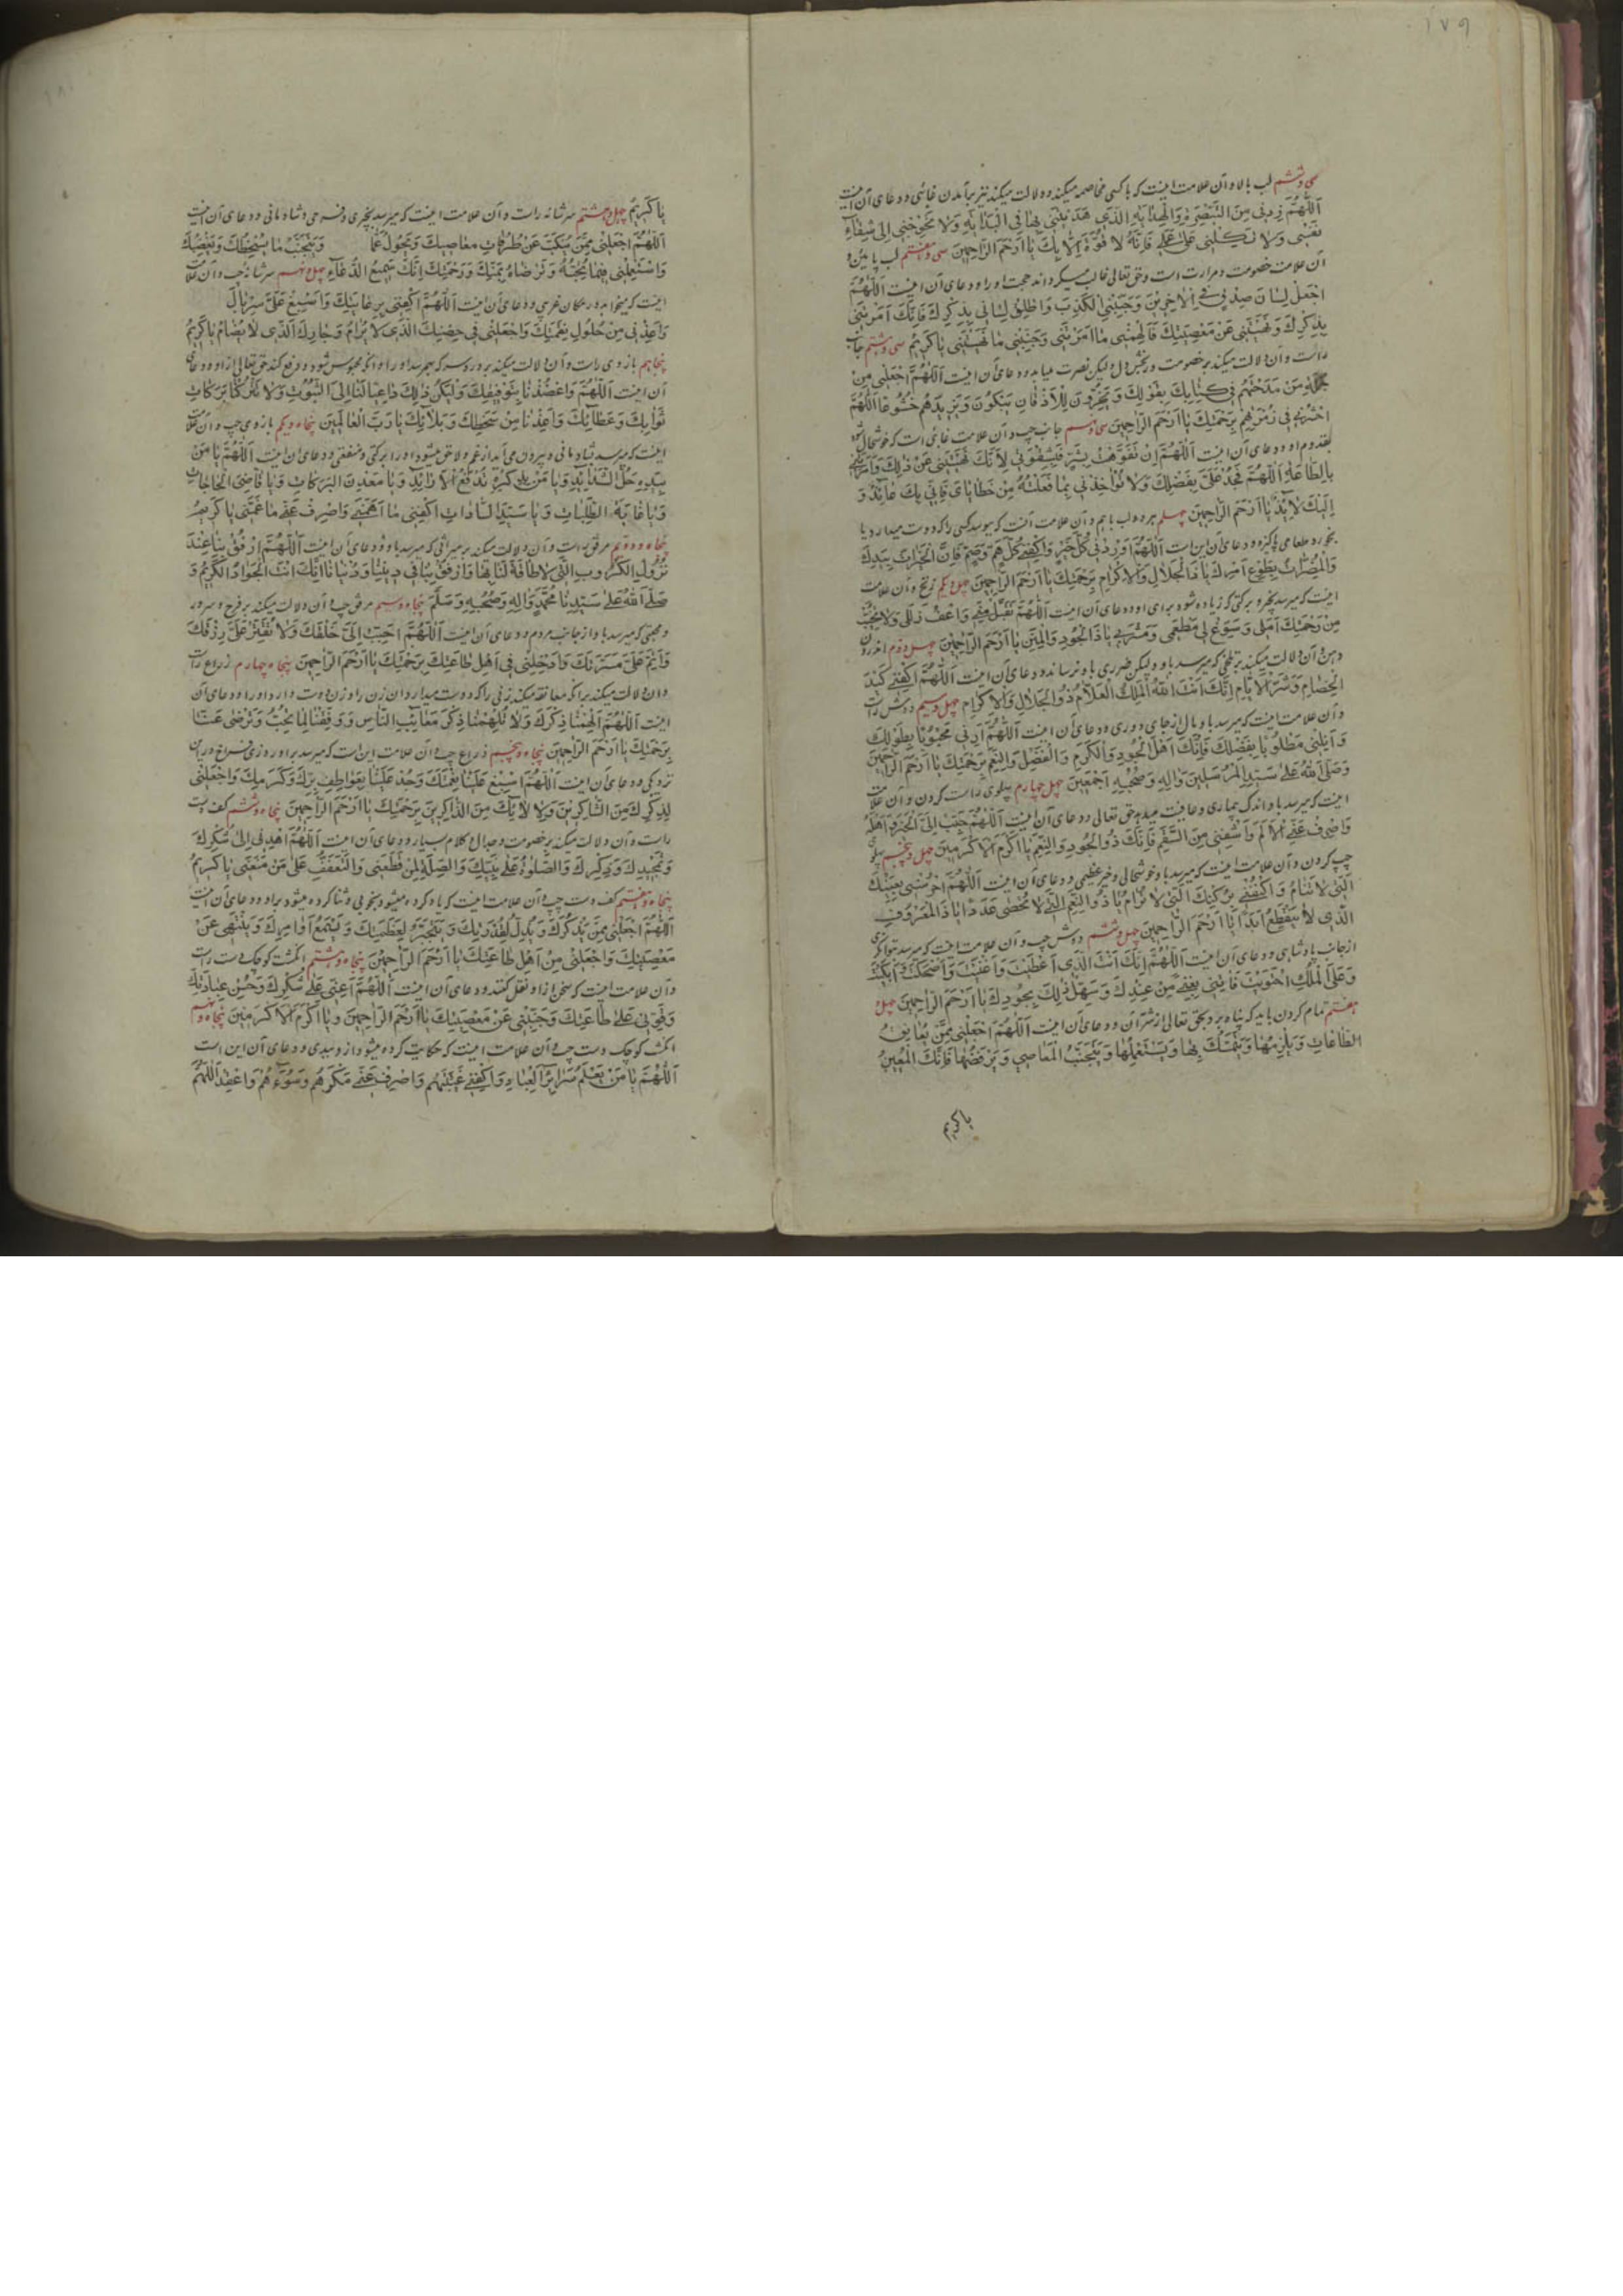 ۱۷۹
سی و ششم لب بالا و آن علامت اینست که با کسی مخاصمه میکند و دلالت میکند نیز بر آمدن غائبی و دعای آن اینست
اَللّٰهُمَّ زِدْنِی مِنَ التَّبْصِرَةِ وَالْهِدَایَةِ الَّذِی هَدَیْتَنِی بِهَا فِی الْبِدَایَةِ وَلَا تُحْوِجْنِی اِلٰی شِفَاءِ
نَفْسِی وَلَا تَکِلْنِی عَلٰی عَمَلِی فَاِنَّهُ لَا قُوَّةَ اِلَّا بِكَ یَا اَرْحَمَ الرَّاحِمِینَ سی و هفتم لب پایین و
آن علامت خصومت و مرارت است و حق تعالی غالب میگرداند حجت او را و دعای آن اینست اَللّٰهُمَّ
اجْعَلْ لِسَانَ صِدْقٍ فِی الْاٰخِرِینَ وَجَنِّبْنِی الْکَذِبَ وَاَطْلِقْ لِسَانِی بِذِکْرِكَ فَاِنَّكَ اَمَرْتَنِی
بِذِکْرِكَ وَنَهَیْتَنِی عَنْ مَعْصِیَتِكَ فَاَلْهِمْنِی مَا اَمَرْتَنِی وَجَنِّبْنِی مَا نَهَیْتَنِی یَا کَرِیمُ سی و هشتم جانب
راست و آن دلالت میکند بر خصومت و رنجش دل لیکن نصرت می‌یابد و دعای آن اینست اَللّٰهُمَّ اجْعَلْنِی مِنْ
جُمْلَةِ مَنْ مَدَحْتَهُمْ فِی کِتَابِكَ بِقَوْلِكَ وَیَخِرُّونَ لِلْاَذْقَانِ یَبْکُونَ وَیَزِیدُهُمْ خُشُوعًا اَللّٰهُمَّ
احْشُرْنِی فِی زُمْرَتِهِمْ بِرَحْمَتِكَ یَا اَرْحَمَ الرَّاحِمِینَ سی و نهم جانب چپ و آن علامت غائبی است که خوشحال شود
بقدوم او و دعای آن اینست اَللّٰهُمَّ اِنْ تَفَوَّهْتُ بِشَرٍّ لِاَنَّكَ نَهَیْتَنِی عَنْ ذٰلِكَ وَاَمَرْتَنِی
بِالطَّاعَةِ اَللّٰهُمَّ فَجُدْ عَلَیَّ بِفَضْلِكَ وَلَا تُؤَاخِذْنِی بِمَا فَعَلْتُهُ مِنْ خَطَایَایَ فَاِنِّی بِكَ عَائِذٌ وَ
اِلَیْكَ لَائِذٌ یَا اَرْحَمَ الرَّاحِمِینَ چهلم هر دو لب با هم و آن علامت آنست که ببوسد کسی را که دوست میدارد یا
بخورد طعامی پاکیزه و دعای آن این است اَللّٰهُمَّ ارْزُقْنِی کُلَّ خَیْرٍ وَاکْفِنِی کُلَّ هَمٍّ وَضَیْمٍ فَاِنَّ الْخَیْرَاتِ بِیَدِكَ
وَالْمَضَرَّاتِ بِطَوْعِ اَمْرِكَ یَا ذَا الْجَلَالِ وَالْاِکْرَامِ بِرَحْمَتِكَ یَا اَرْحَمَ الرَّاحِمِینَ چهل و یکم زنخ و آن علامت
اینست که میرسد بخیر و برکتی که زیاده شود برای او و دعای آن اینست اَللّٰهُمَّ تَقَبَّلْ مِنِّی وَاعْفُ زَلَلِی وَلَا تُخَیِّبْ
مِنْ رَحْمَتِكَ اَمَلِی وَسَوِّغْ لِی مَطْعَمِی وَمَشْرَبِی یَا ذَا الْجُودِ وَالْمِنَنِ یَا اَرْحَمَ الرَّاحِمِینَ چهل و دوم اندرون
دهن و آن دلالت میکند بر تلخی که میرسد باو ولیکن ضرری باو نرساند و دعای آن اینست اَللّٰهُمَّ اکْفِنِی کَیْدَ
الْخِصَامِ وَشَرَّ الْاَیَّامِ اِنَّكَ اَنْتَ اللّٰهُ الْمَلِكُ الْعَلَّامُ ذُو الْجَلَالِ وَالْاِکْرَامِ چهل و سیم دوش راست
و آن علامت اینست که میرسد باو مال از جای دوری و دعای آن اینست اَللّٰهُمَّ اَرِنِی مَحْبُوبًا بِطَوْلِكَ
وَاَنِلْنِی مَطْلُوبًا بِفَضْلِكَ فَاِنَّكَ اَهْلُ الْجُودِ وَالْکَرَمِ وَالْفَضْلِ وَالنِّعَمِ بِرَحْمَتِكَ یَا اَرْحَمَ الرَّاحِمِینَ
وَصَلَّی اللّٰهُ عَلٰی سَیِّدِ الْمُرْسَلِینَ وَاٰلِهِ وَصَحْبِهِ اَجْمَعِینَ چهل چهارم پهلوی راست کردن و آن علامت
اینست که میرسد باو اندک بیماری و عافیت میدهد حق تعالی و دعای آن اینست اَللّٰهُمَّ حَبِّبْ اِلَیَّ الْخَیْرَ وَاَهْلَهُ
وَاصْرِفْ عَنِّی الْاَلَمَ وَاشْفِنِی مِنَ السَّقَمِ فَاِنَّكَ ذُو الْجُودِ وَالنِّعَمِ یَا اَکْرَمَ الْاَکْرَمِینَ چهل و پنجم پهلوی
چپ کردن و آن علامت اینست که میرسد باو خوشحالی و خیر عظیمی و دعای آن اینست اَللّٰهُمَّ احْرُسْنِی بِعَیْنِكَ
الَّتِی لَا تَنَامُ وَاکْنُفْنِی بِرُکْنِكَ الَّذِی لَا یُرَامُ یَا ذُو النِّعَمِ الَّتِی لَا تُحْصٰی عَدَدًا یَا ذَا الْمَعْرُوفِ
الَّذِی لَا یَنْقَطِعُ اَبَدًا یَا اَرْحَمَ الرَّاحِمِینَ چهل و ششم دوش چپ و آن علامت اینست که میرسد توانگری
از جانب پادشاهی و دعای آن اینست اَللّٰهُمَّ اِنَّكَ اَنْتَ الَّذِی اَعْطَیْتَ وَاَغْنَیْتَ وَاَضْحَکْتَ وَاَبْکَیْتَ
وَعَلَی الْمُلْكِ احْتَوَیْتَ مِنْ عِنْدِكَ وَسَهِّلْ ذٰلِكَ بِجُودِكَ یَا اَرْحَمَ الرَّاحِمِینَ چهل و
هفتم تمام کردن باید که پناه برد بحق تعالی از شر آن و دعای آن اینست اَللّٰهُمَّ اجْعَلْنِی مِمَّنْ
الطَّاعَاتِ وَیَلْزَمُهَا وَیَتَمَسَّكُ بِهَا وَیَسْتَعْمِلُهَا وَیَتَجَنَّبُ الْمَعَاصِیَ وَیَرْفُضُهَا فَاِنَّكَ الْمُعِینُ
یا کریم
۱۸۰
یَا کَرِیمُ چهل و هشتم سر شانه راست و آن علامت اینست که میرسد بخیری و فرحی و شادمانی و دعای آن اینست
اَللّٰهُمَّ اجْعَلْنِی مِمَّنْ عَنْ طُرُقَاتِ مَعَاصِیكَ وَیَحُولُ عَمَّا وَیَتَجَنَّبُ مَا یُسْخِطُكَ وَیُغْضِبُكَ
وَاسْتَعْمِلْنِی فِیمَا تُحِبُّهُ وَتَرْضَاهُ بِمَنِّكَ وَرَحْمَتِكَ اِنَّكَ سَمِیعُ الدُّعَاءِ چهل و نهم سر شانه چپ و آن علامت
اینست که میخوابد در مکان غریبی و دعای آن اینست اَللّٰهُمَّ اکْنُفْنِی بِرِعَایَتِكَ وَاَسْبِغْ عَلَیَّ سِرْبَالَ
وَاَعِذْنِی مِنْ حُلُولِ نِقْمَتِكَ وَاجْعَلْنِی فِی حِصْنِكَ الَّذِی لَا یُرَامُ وَجِوَارِكَ الَّذِی لَا یُضَامُ یَا کَرِیمُ
پنجاهم بازوی راست و آن دلالت میکند بر که محبوس شود و دفع کند حق تعالی از او و دعای
آن اینست اَللّٰهُمَّ وَاعْضُدْنَا بِتَوْفِیقِكَ وَلْیَکُنْ ذٰلِكَ دَاعِیًا لَنَا اِلَی الثُّبُوتِ بَرَکَاتِ
ثَوَابِكَ وَعَطَائِكَ وَاَعِذْنَا مِنْ سَخَطِكَ وَبَلَائِكَ یَا رَبَّ الْعَالَمِینَ پنجاه و یکم بازوی چپ و آن علامت
اینست که میرسد شادمانی و بیرون می‌آید از غم و لاحق میشود او را برکتی و منفعتی و دعای آن اینست اَللّٰهُمَّ یَا مَنْ
بِیَدِهِ حَلُّ الشَّدَائِدِ وَیَا مَنْ یَا مَعْدِنَ الْبَرَکَاتِ وَیَا قَاضِیَ الْحَاجَاتِ
وَیَا غَایَةَ الطَّلِبَاتِ وَیَا سَیِّدَ السَّادَاتِ اکْفِنِی مَا اَهَمَّنِی وَاصْرِفْ عَنِّی مَا غَمَّنِی یَا کَرِیمُ
پنجاه و دوم مرفق راست و آن دلالت میکند بر میراثی که میرسد باو و دعای آن اینست اَللّٰهُمَّ ارْفُقْ بِنَا عِنْدَ
نُزُولِ الْکُرُوبِ الَّتِی لَا طَاقَةَ لَنَا بِهَا وَارْفُقْ بِنَا فِی دِینِنَا وَدُنْیَانَا اِنَّكَ اَنْتَ الْجَوَادُ الْکَرِیمُ وَ
صَلَّی اللّٰهُ عَلٰی سَیِّدِنَا مُحَمَّدٍ وَاٰلِهِ وَصَحْبِهِ وَسَلَّمَ پنجاه و سیم مرفق چپ و آن دلالت میکند بر فرح و سرور
و محبتی که میرسد باو از جانب مردم و دعای آن اینست اَللّٰهُمَّ اَحْبِبْ اِلَیَّ خَلْقَكَ وَلَا تُقَتِّرْ عَلَیَّ رِزْقَكَ
وَاَتِمَّ عَلَیَّ مَسَرَّتَكَ وَاَدْخِلْنِی فِی اَهْلِ طَاعَتِكَ بِرَحْمَتِكَ یَا اَرْحَمَ الرَّاحِمِینَ پنجاه و چهارم ذراع راست
و آن دلالت میکند بر آنکه معانقه میکند زنی را که دوست میدارد آن زن را و زن دوست دارد او را و دعای آن
اینست اَللّٰهُمَّ اَلْهِمْنَا ذِکْرَكَ وَلَا تُلْهِمْنَا ذِکْرَ مَعَائِبِ النَّاسِ وَوَفِّقْنَا لِمَا تُحِبُّ وَتَرْضٰی عَنَّا
بِرَحْمَتِكَ یَا اَرْحَمَ الرَّاحِمِینَ پنجاه و پنجم ذراع چپ و آن علامت این است که میرسد براو روزی فراخ درین
نزدیکی و دعای آن اینست اَللّٰهُمَّ اَسْبِغْ عَلَیْنَا نِعْمَتَكَ وَجُدْ عَلَیْنَا بِعَوَاطِفِ بِرِّكَ وَکَرَمِكَ وَاجْعَلْنِی
لِذِکْرِكَ مِنَ الشَّاکِرِینَ وَلِاٰلَائِكَ مِنَ الذَّاکِرِینَ بِرَحْمَتِكَ یَا اَرْحَمَ الرَّاحِمِینَ پنجاه و ششم کف دست
راست و آن دلالت میکند بر خصومت و جدال و کلام بسیار و دعای آن اینست اَللّٰهُمَّ اهْدِنِی اِلٰی شُکْرِكَ
وَتَمْجِیدِكَ وَذِکْرِكَ وَالصَّلٰوةِ عَلٰی نَبِیِّكَ وَالصِّلَةِ لِمَنْ قَطَعَنِی وَالتَّعَفُّفِ عَلٰی مَنْ مَنَعَنِی یَا کَرِیمُ
پنجاه و هفتم کف دست چپ و آن علامت اینست که یاد کرده میشود بخوبی و ثنا کرده میشود براو و دعای آن اینست
اَللّٰهُمَّ اجْعَلْنِی مِمَّنْ یَذْکُرُكَ وَیَذِلُّ لِقُدْرَتِكَ لِعَظَمَتِكَ وَیَسْتَمِعُ اَوَامِرَكَ وَیَنْتَهِی عَنْ
مَعْصِیَتِكَ وَاجْعَلْنِی مِنْ اَهْلِ طَاعَتِكَ یَا اَرْحَمَ الرَّاحِمِینَ پنجاه و هشتم انگشت کوچک دست راست
و آن علامت اینست که سخن از او نقل کنند و دعای آن اینست اَللّٰهُمَّ اَعِنِّی عَلٰی شُکْرِكَ وَحُسْنِ عِبَادَتِكَ
وَقَوِّنِی عَلٰی طَاعَتِكَ وَجَنِّبْنِی عَنْ مَعْصِیَتِكَ یَا اَرْحَمَ الرَّاحِمِینَ وَیَا اَکْرَمَ الْاَکْرَمِینَ پنجاه و نهم
انگشت کوچک دست چپ و آن علامت اینست که حکایت کرده میشود از و ببدی و دعای آن این است
اَللّٰهُمَّ یَا مَنْ یَعْلَمُ سَرَائِرَ الْعِبَادِ وَاکْفِنِی غِیبَتَهُمْ وَاصْرِفْ عَنِّی مَکْرَهُمْ وَسُوءَهُمْ اَللّٰهُمَّ